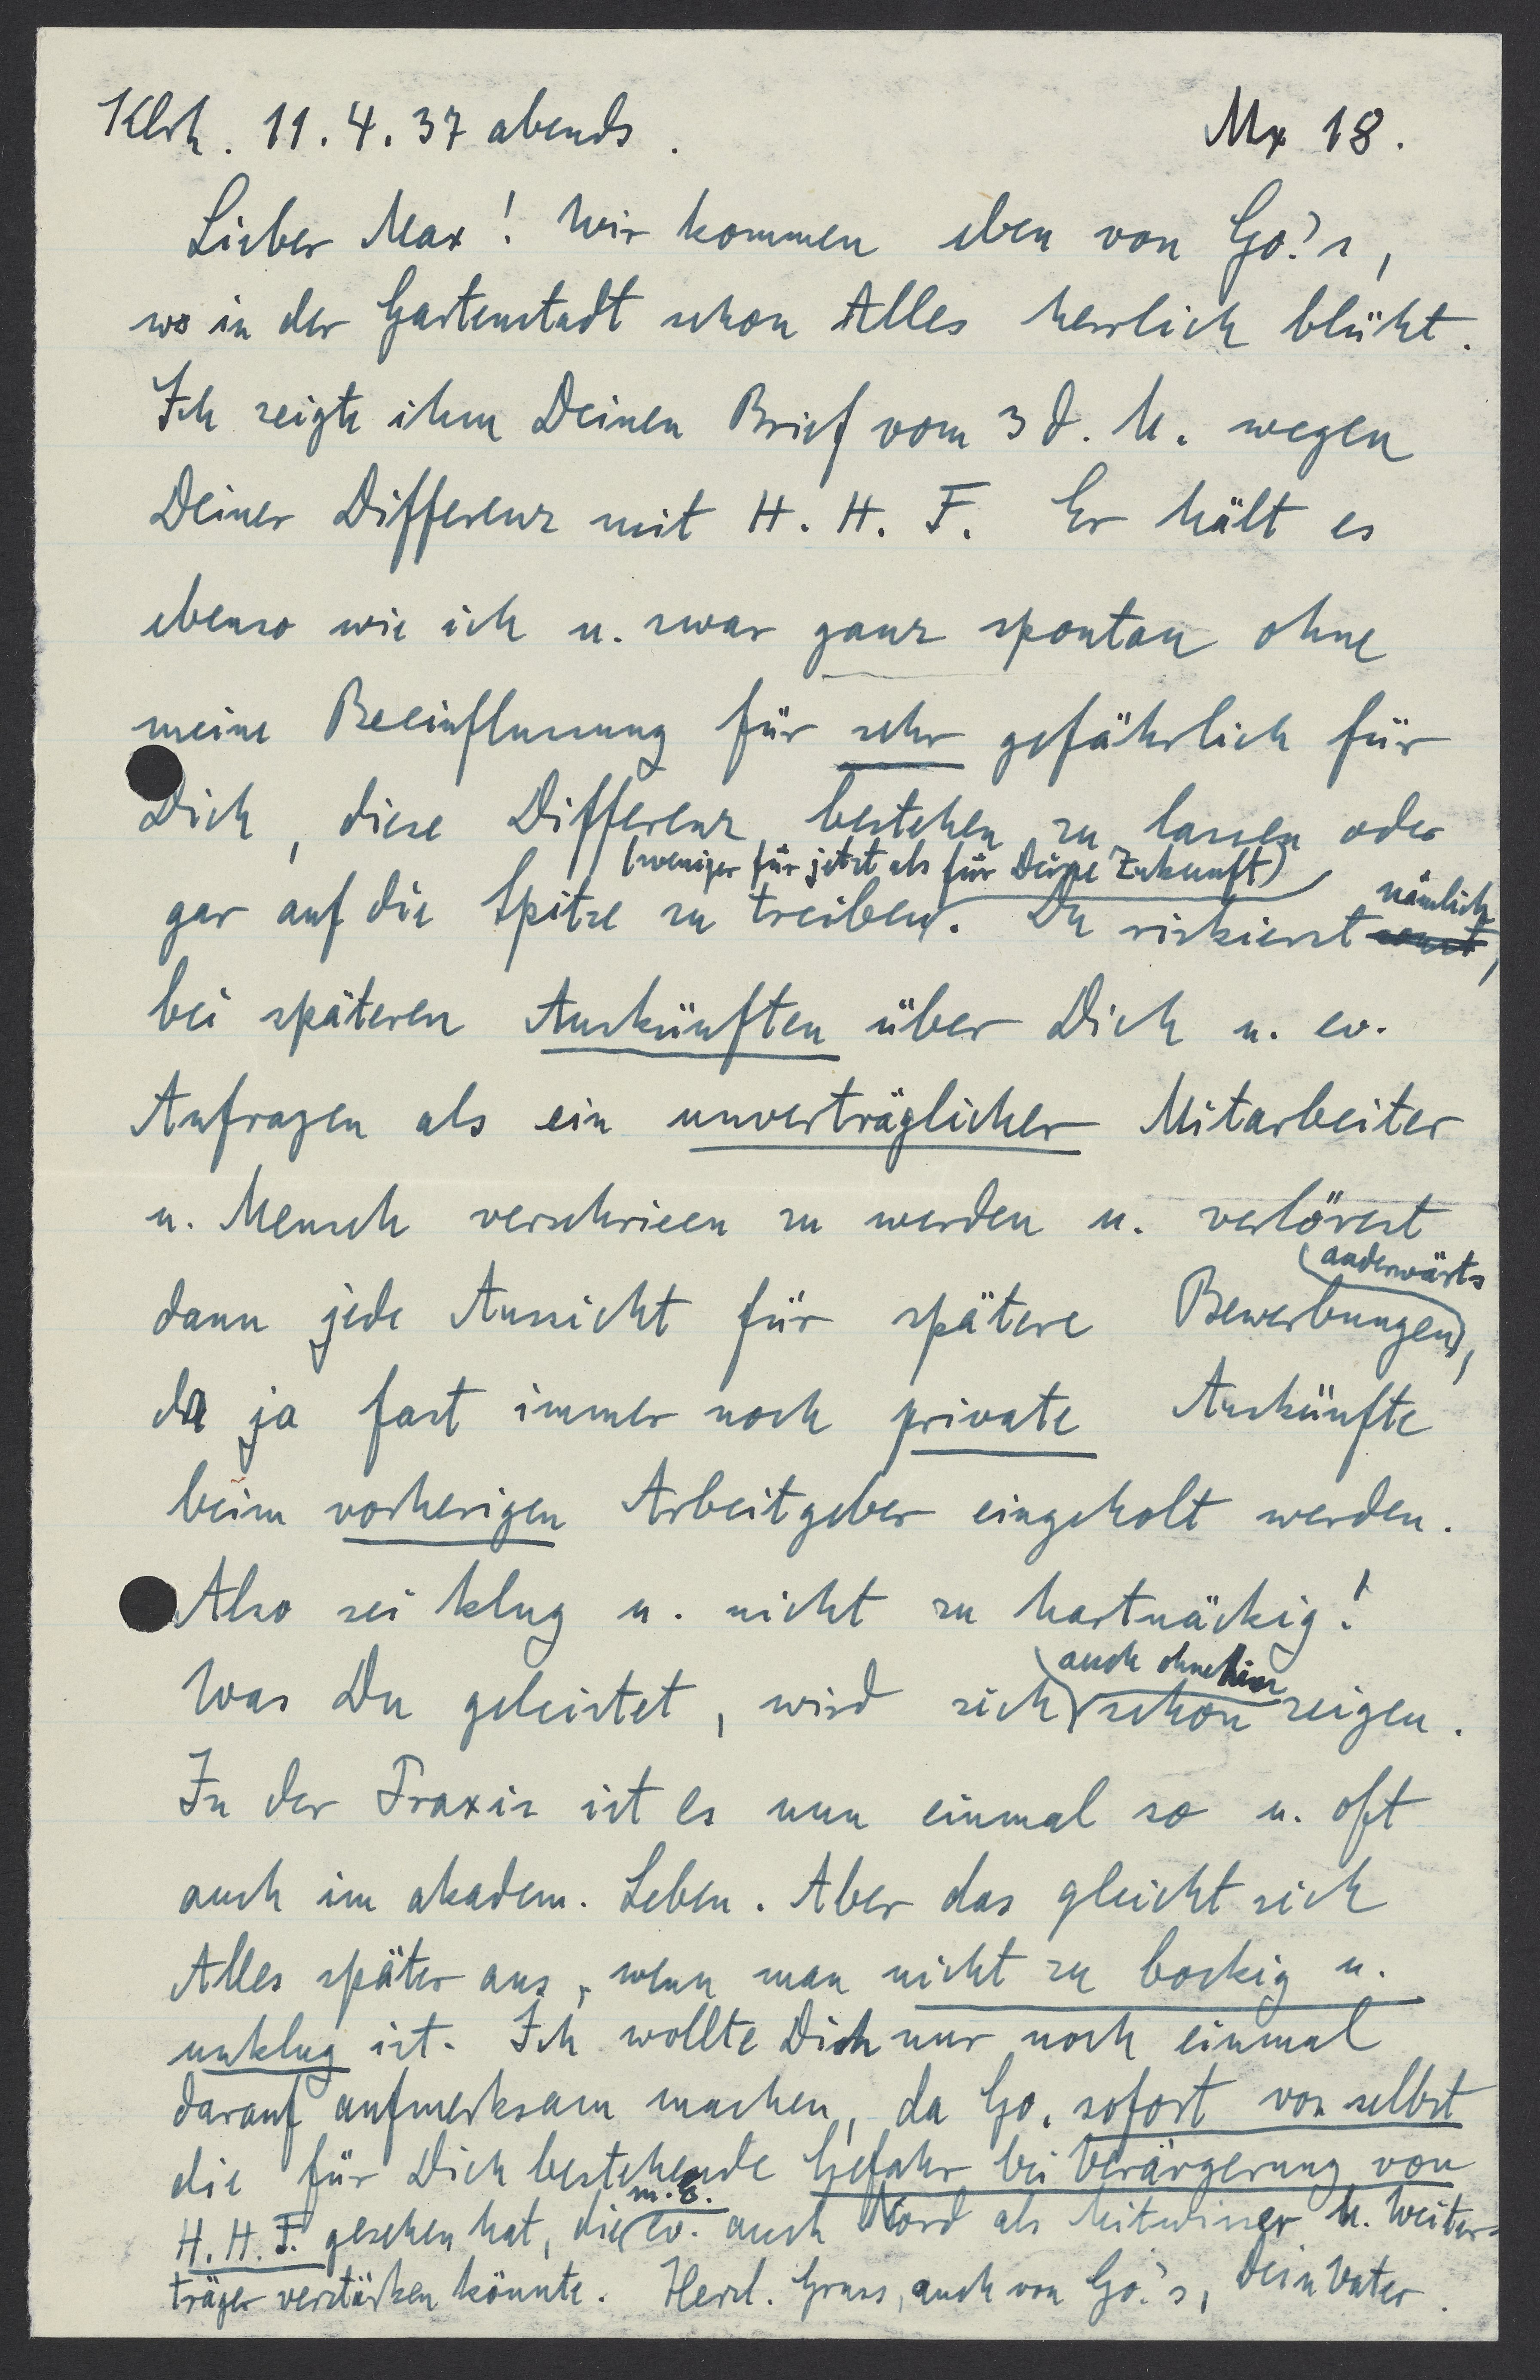 Klrh. 11.4.37 abends. Mx 18.
Lieber Max! Wir kommen eben von Go.'s,
wo in der Gartenstadt schon Alles herrlich blüht.
Ich zeigte ihm Deinen Brief vom 3 d. M. wegen
Deiner Differenz mit H. H. F. Er hält es
ebenso wie ich u. zwar ganz spontan ohne
meine Beeinflussung für sehr gefährlich für
Dich, diese Differenz bestehen zu lassen oder
(weniger für jetzt als für Deine Zukunft)
gar auf die Spitze zu treiben. Du riskierst sonst nämlich,
bei späteren Auskünften über Dich u. ev.
Anfragen als ein unverträglicher Mitarbeiter
u. Mensch verschrieen zu werden u. verlörest
anderwärts
dann jede Aussicht für spätere Bewerbungen,
da ja fast immer noch private Auskünfte
beim vorherigen Arbeitgeber eingeholt werden.
Also sei klug u. nicht zu hartnäckig!
auch ohnehin
Was Du geleistet, wird sich schon zeigen.
In der Praxis ist es nun einmal so u. oft
auch im akadem. Leben. Aber das gleicht sich
Alles später aus, wenn man nicht zu bockig u.
unklug ist. Ich wollte Dich nur noch einmal
darauf aufmerksam machen, da Go. sofort von selbst
die für Dich bestehende Gefahr bei Verärgerung von
m. E.
H. H. F. gesehen hat, die ev. auch Nord als Mitwisser u. Weiter-
träger verstärken könnte. Herzl. Gruss, auch von Go.'s, Dein Vater.